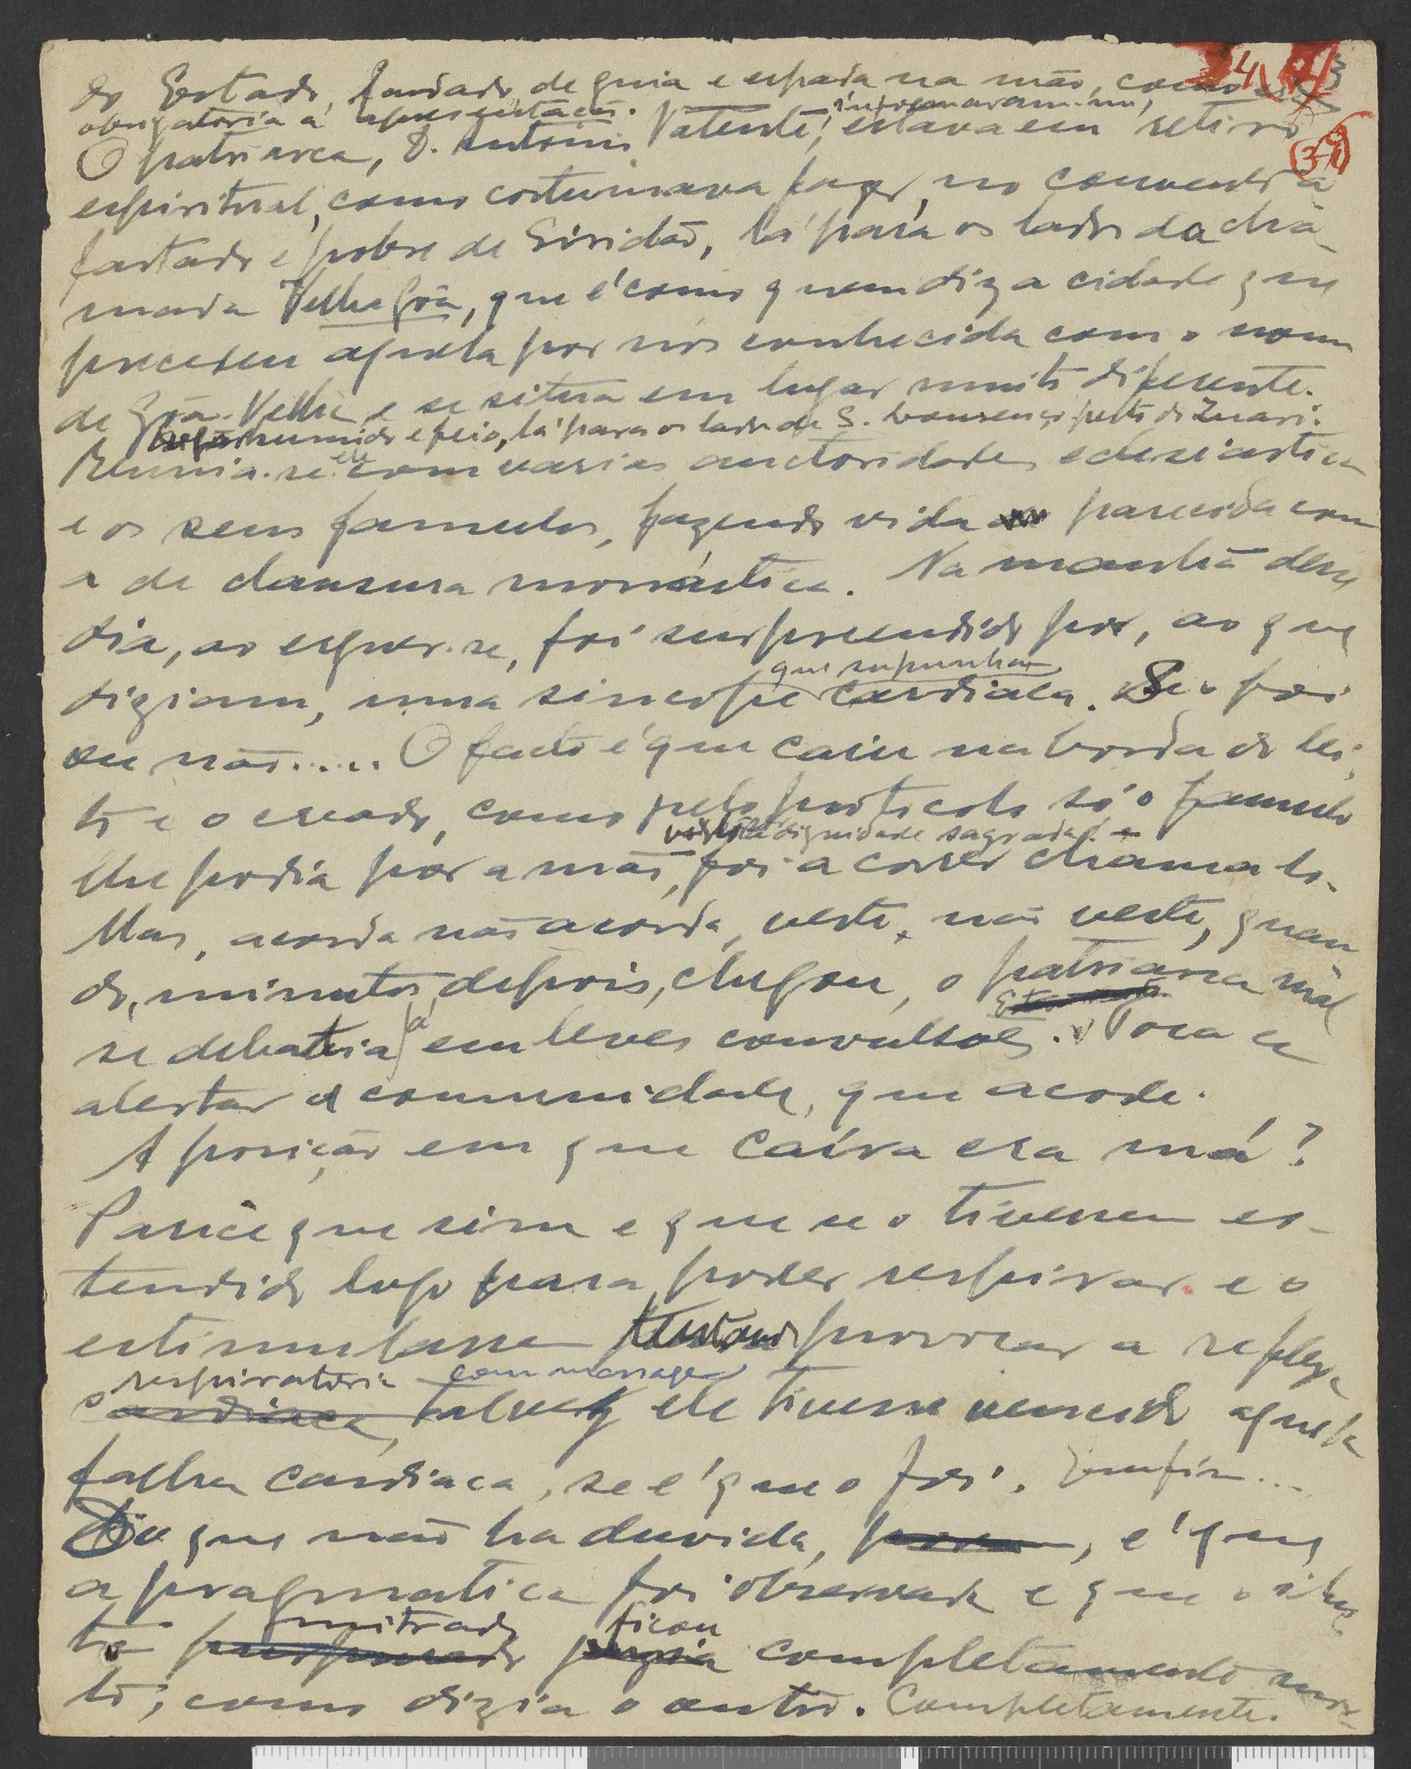 do Estado, fardado, de guia e espada na mão, como
obrigatoria á apresentação.
O patriarca, D. Antonio Valente, informaram-me, estava em retiro
espiritual, como costumava fazer, no convento a-
fastado e pobre de Siridão, lá para os lados da cha-
mada Velha Goa, que é como quem diz a cidade que
precedeu aquela por nós conhecida com o nome
de Goa-Velha e se situa em lugar muito diferente.
humido e feio, lá para os lados de S. Lourenço perto do Zuari.
Reunia-se ele com varias auctoridades eclesiasticas
e os seus famulos, fazendo vida parecida com
a de clausura monástica. Na manhã desse
dia, ao erguer-se, foi surpreendido por, ao que
diziam, uma sincope que supunham cardiaca. Se o foi
ou não..... O facto é que caiu na borda do lei-
to e o creado, como pelo protocolo só o famulo
lhe podia pôr a mão, dignidade sagrada, foi a correr chama-lo.
Mas, acorda não acorda, veste, não veste, quan-
do, minutos depois, chegou, o patriarca mal
se debatia já em leves convulsões. Toca a
alertar a comunidade, que acode.
A posição em que caíra era má?
Parece que sim e que se o tivessem es-
tendido logo para poder respirar e o
estimulassem provocar a reflexa
respiratoria com massagens, talvez ele tivesse vencido aquela
falha cardiaca, se é que o foi. Enfim...
Do que não ha duvida, é que
a pragmatica foi observada e que o ilus-
tre mitrado ficou completamente mor-
to; como dizia o outro. Completamente.
4
3
(31)